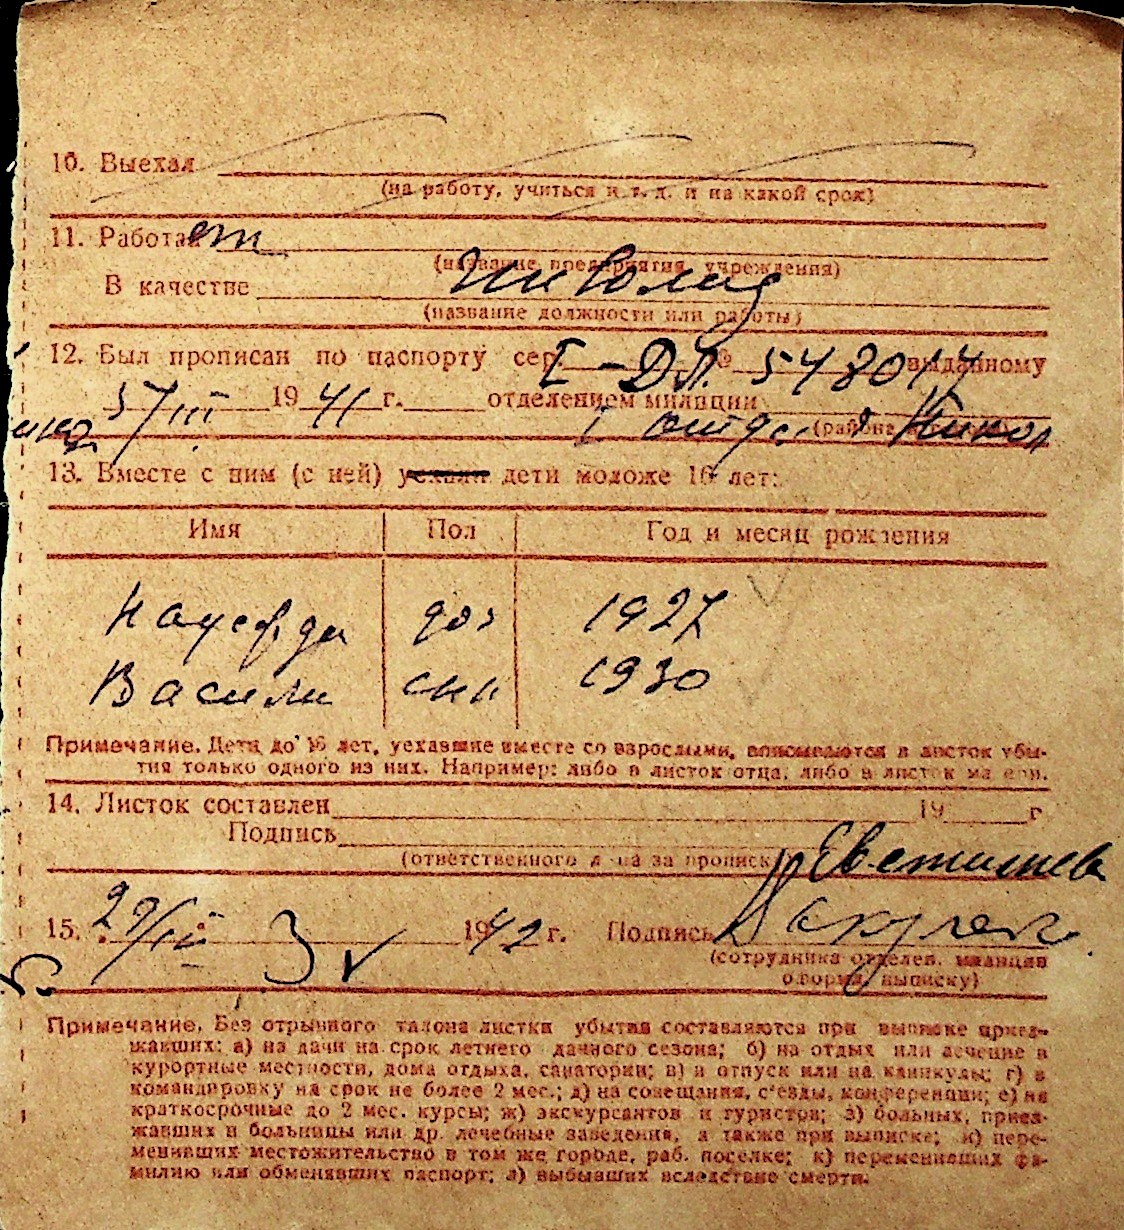 10. Выехал
(на работу, учиться и т. д. и на какой срок)
11. Работает
(название предприятия, учреждения)
В качестве инвалид
(название должности или работы)
12. Был прописан по паспорту сер. I-ДЛ. № 548017 выданному
5/III 1941 г. отделением милиции
I отдел
(района
13. Вместе с ним (с ней) уехали дети моложе 16 лет:
Имя Пол Год и месяц рождения
Надежда доч 1927
Василий сын 1930
Примечание. Дети до 16 лет, уехавшие вместе со взрослыми, вписываются в листок убы-
тия только одного из них. Например: либо в листок отца, либо в листок матери.
14. Листок составлен 19 г
Подпись
(ответственного лица за прописку)
15. 29/III 1942 г. Подпись
(сотрудника отделен. милиции
оформ. выписку)
Примечание. Без отрывного талона листки убытия составляются при выписке приез-
жавших: а) на дачи на срок летнего дачного сезона; б) на отдых или лечение в
курортные местности, дома отдыха, санатории; в) в отпуск или на каникулы; г) в
командировку на срок не более 2 мес.; д) на совещания, с'езды, конференции; е) на
краткосрочные до 2 мес. курсы; ж) экскурсантов и туристов; з) больных, приез-
жавших в больницы или др. лечебные заведения, а также при выписке; и) пере-
менивших местожительство в том же городе, раб. поселке; к) переменивших фа-
милию или обменявших паспорт; л) выбывших вследствие смерти.